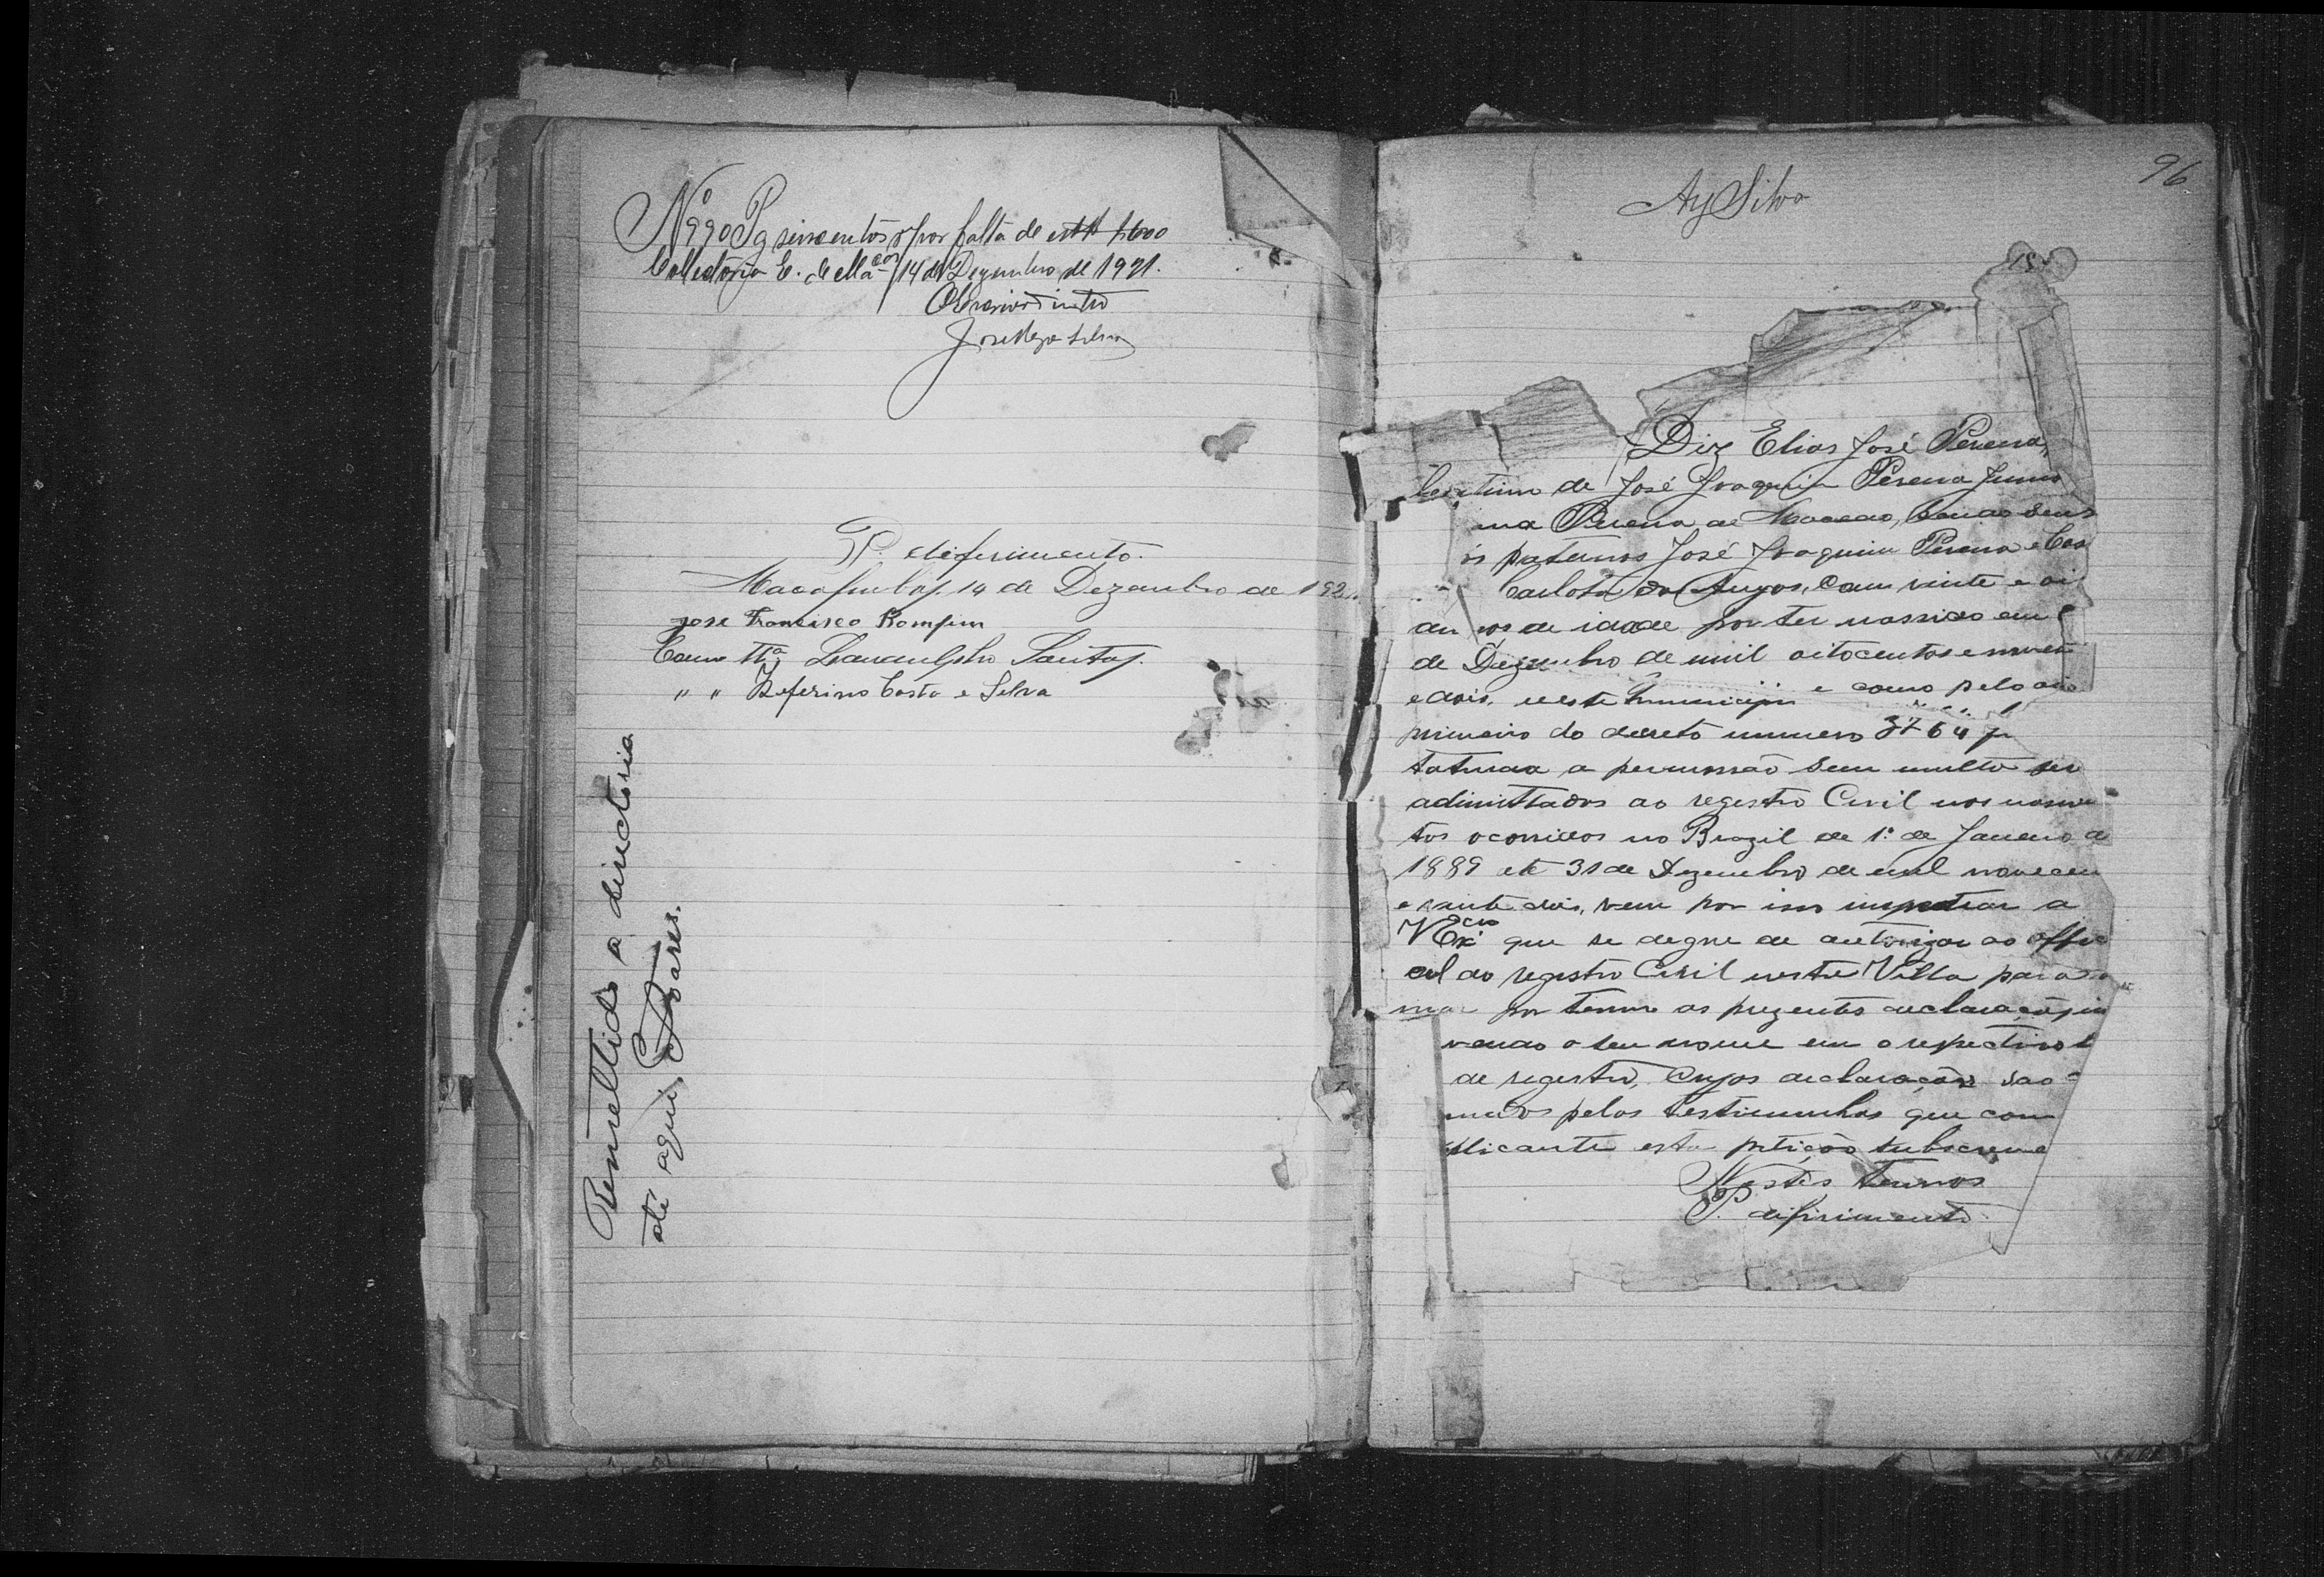 Nº 990 Pg seiscentos rs por falta de est. $600
Colectoria E. de Macos 14 de Dezembro de 1921.
P. deferimento.
Macahubas, 14 de Dezembro de 192
jose Francisco Bomfim
Como ttª Lanulpho Santos.
" " Zeferino Costa e Silva
Remettido a directoria
até aqui, Soares.
96
Ay Silva
Diz Elias José Pereira,
legitimo de José Joaquim Pereira Junior
ina Pereira de Macedo, sendo seus
ós paternos José Joaquim Pereira e
Carlota dos Anjos, com vinte e oi
annos de idade por ter nascido em
de Dezembro de mil oitocentos e noven
e dois, neste municipio e como pelo
primeiro do decreto numero 3764
a permissão sem multa ser
adimittados ao registro Civil nos nascim
tos ocorridos no Brazil de 1º de Janeiro de
1889 até 31 de Dezembro de mil novecen
e vinte dois, vem por isso impetrar a
V Excia que se digne de autorizar ao offi
cial do registro Civil nesta Villa para
mar por termo as prezentes declarações, in
vendo o seu nome em o respectivo l
de registro, Cujas declarações são
mados pelas testimunhas que com
plicante esta petição subscreve
Nestes termos
P. difirimento.